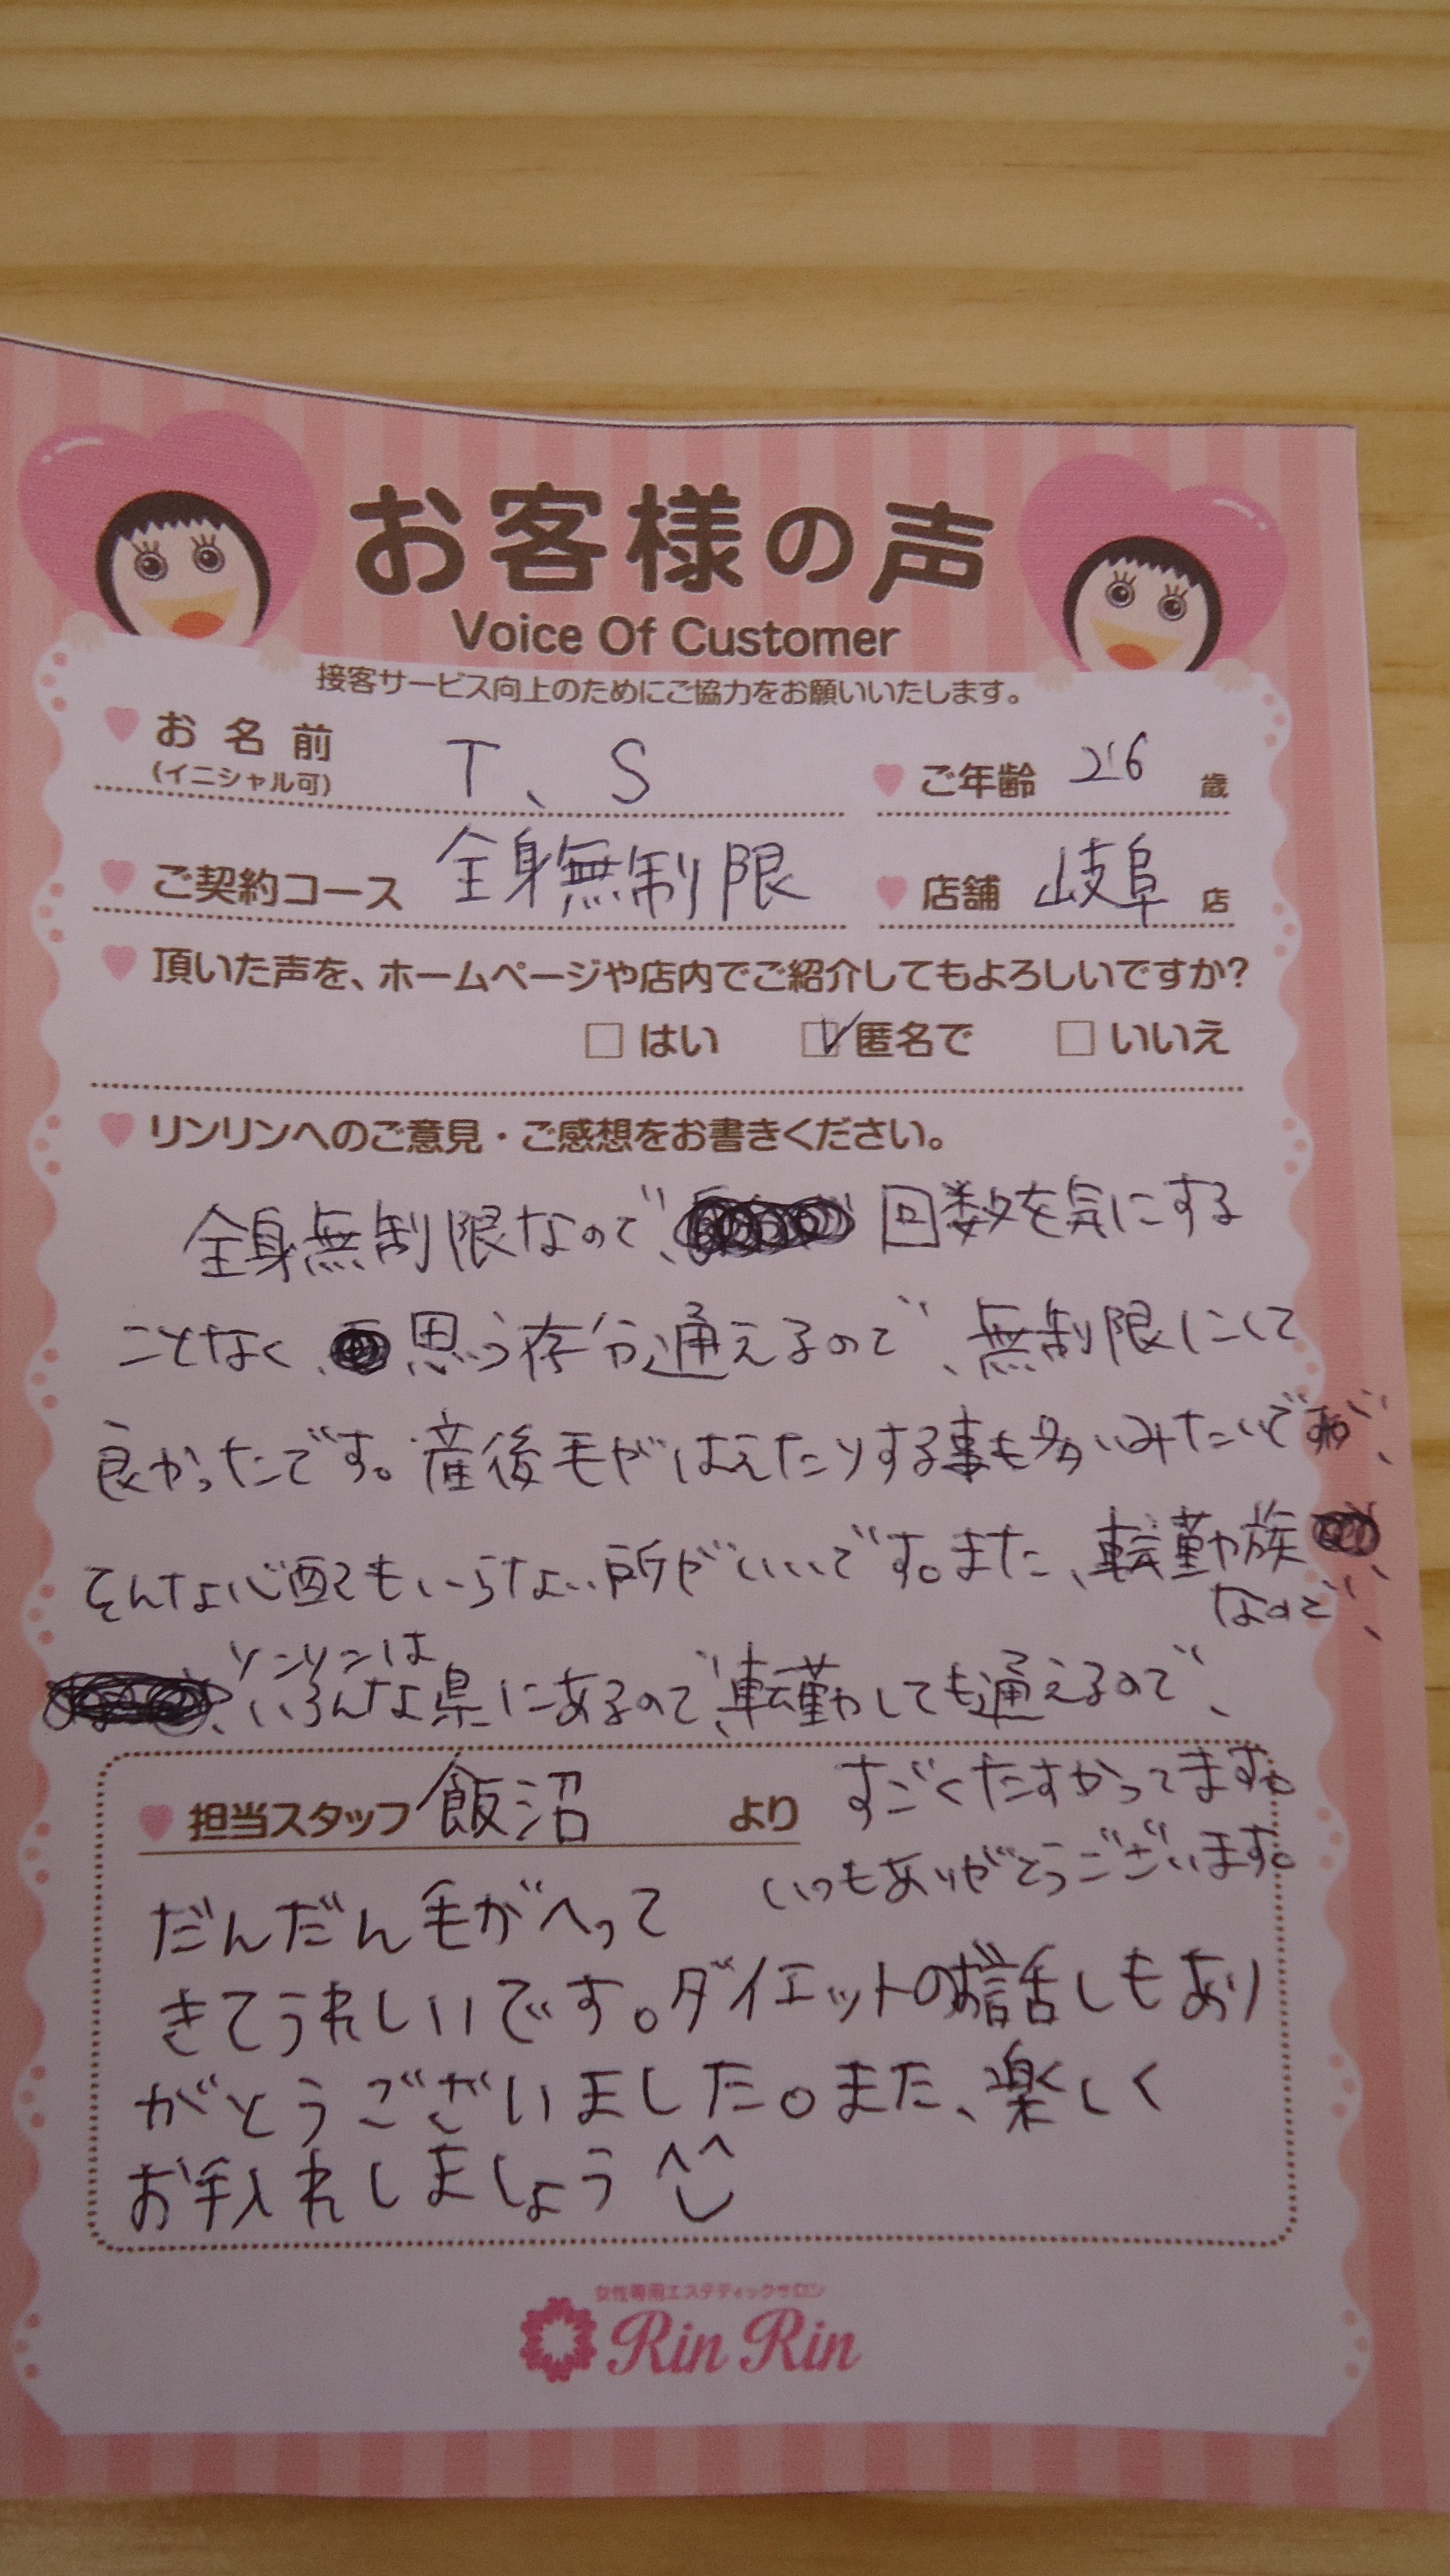 お客様の声
Voice Of Customer
接客サービス向上のためにご協力をお願いいたします。
お名前 T、S ご年齢 26 歳
(イニシャル可)
ご契約コース 全身無制限 店舗 岐阜 店
頂いた声を、ホームページや店内でご紹介してもよろしいですか?
はい 匿名で いいえ
リンリンへのご意見・ご感想をお書きください。
全身無制限なので、回数を気にする
ことなく、思う存分通えるので、無制限にして
良かったです。産後毛がはえたりする事も多いみたいですが、
そんな心配もいらない所がいいです。また、転勤族
なので、
リンリンは
いろんな県にあるので、転勤しても通えるので、
すごくたすかってます。
いつもありがとうございます。
担当スタッフ 飯沼 より
だんだん毛がへって
きてうれしいです。ダイエットのお話しもあり
がとうございました。また、楽しく
お手入れしましょう ^^
女性専用エステティックサロン
Rin Rin